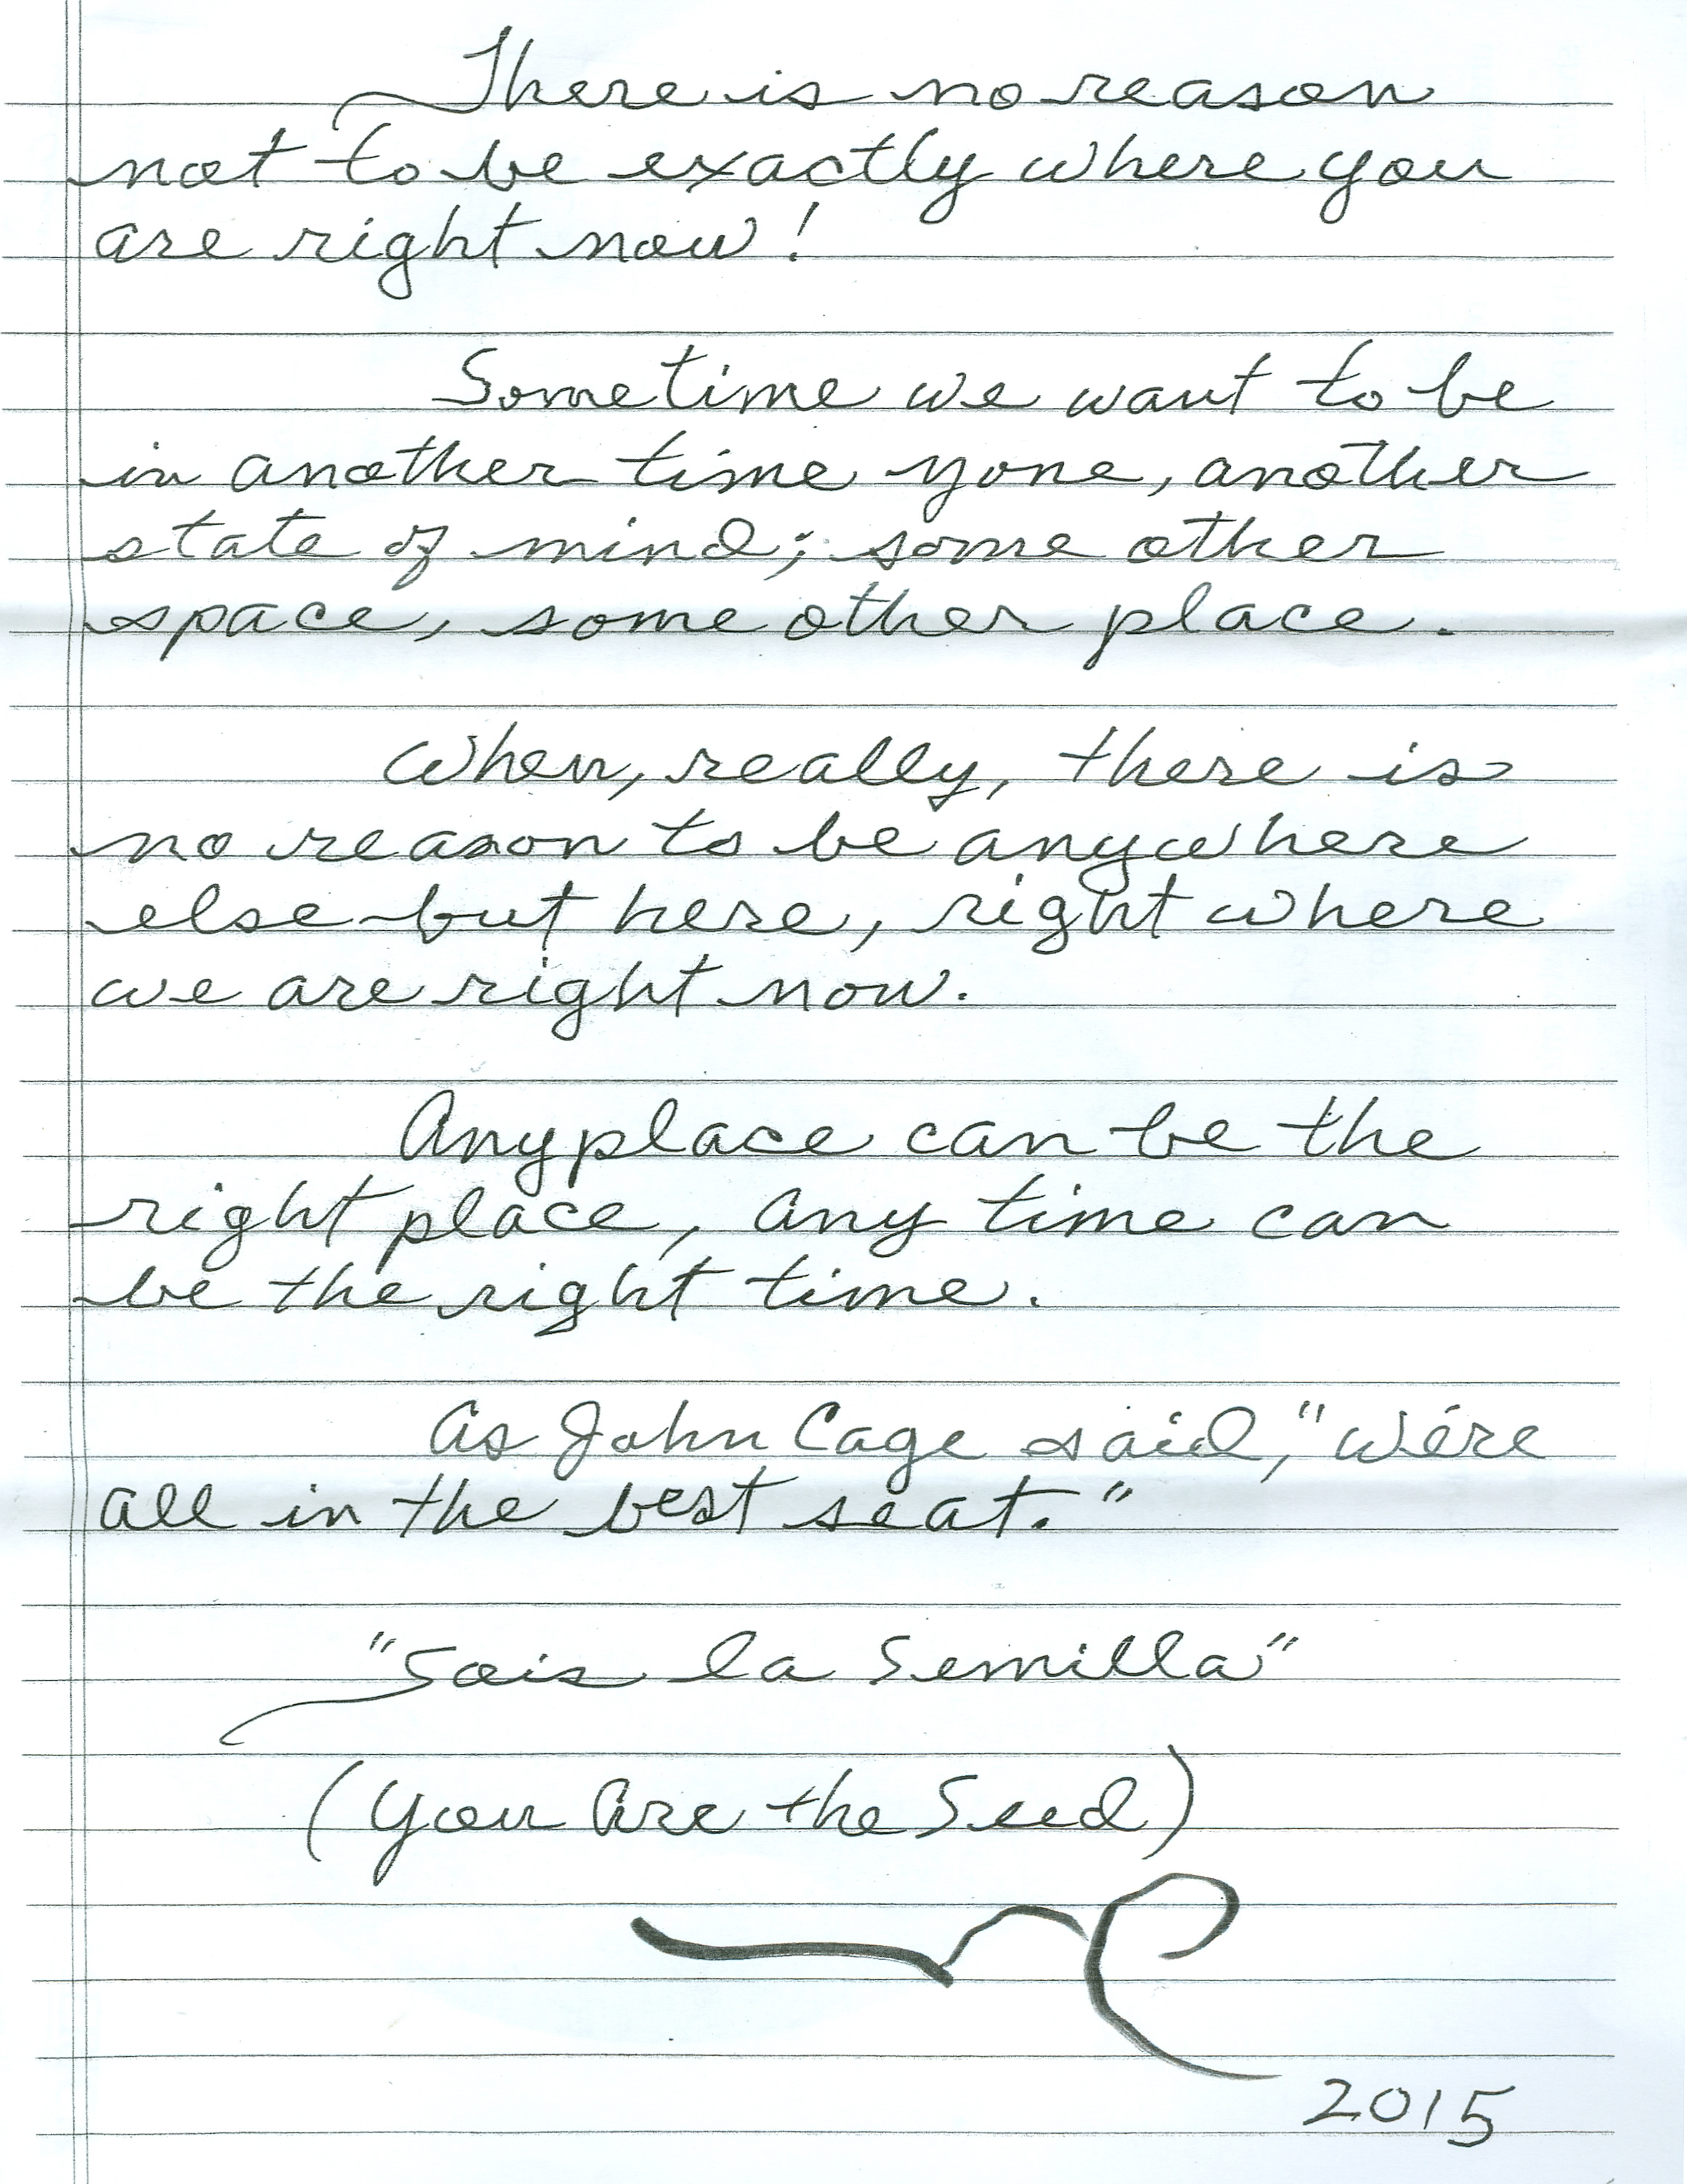 There is no reason
not to be exactly where you
are right now!
Sometime we want to be
in another time zone, another
state of mind; some other
space, some other place.
When, really, there is
no reason to be anywhere
else but here, right where
we are right now.
Any place can be the
right place, any time can
be the right time.
As John Cage said, "We're
all in the best seat."
"Sois la Semilla"
(You Are the Seed)
2015